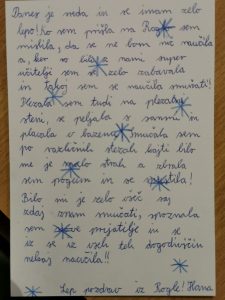 Danes je sreda in se imam zelo
lepo! ko sem prišla na Rogle sem
mislila, da se ne bom nič naučila
a, ker so bili z nami super
učitelji sem se zelo zabavala
in takoj sem se naučila smučati!
Plezala sem tudi na plezalni
steni, se peljala s sanmi in
plavala v bazenu. Smučala sem
po različnih stezah kajti bilo
me je malo strah a zbrala
sem pogum in se spustila!
Bilo mi je zelo všeč saj
zdaj znam smučati, spoznala
sem nove prijatelje in se
iz se iz vseh teh dogodivščin
nekaj naučila!!
Lep pozdrav iz Rogle! Hana